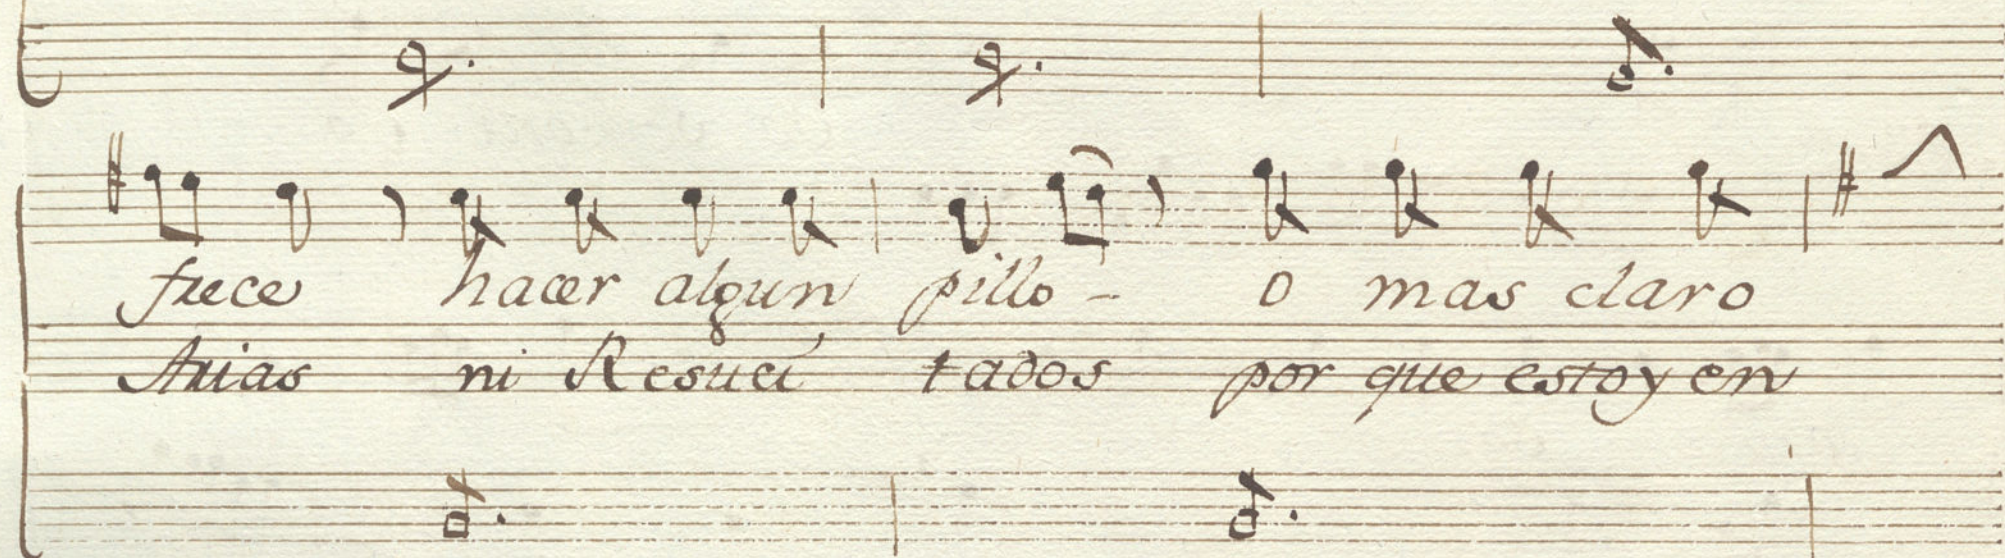 frece hacer algun pillo - o mas claro
Arias ni Resuci tados por que estoy en